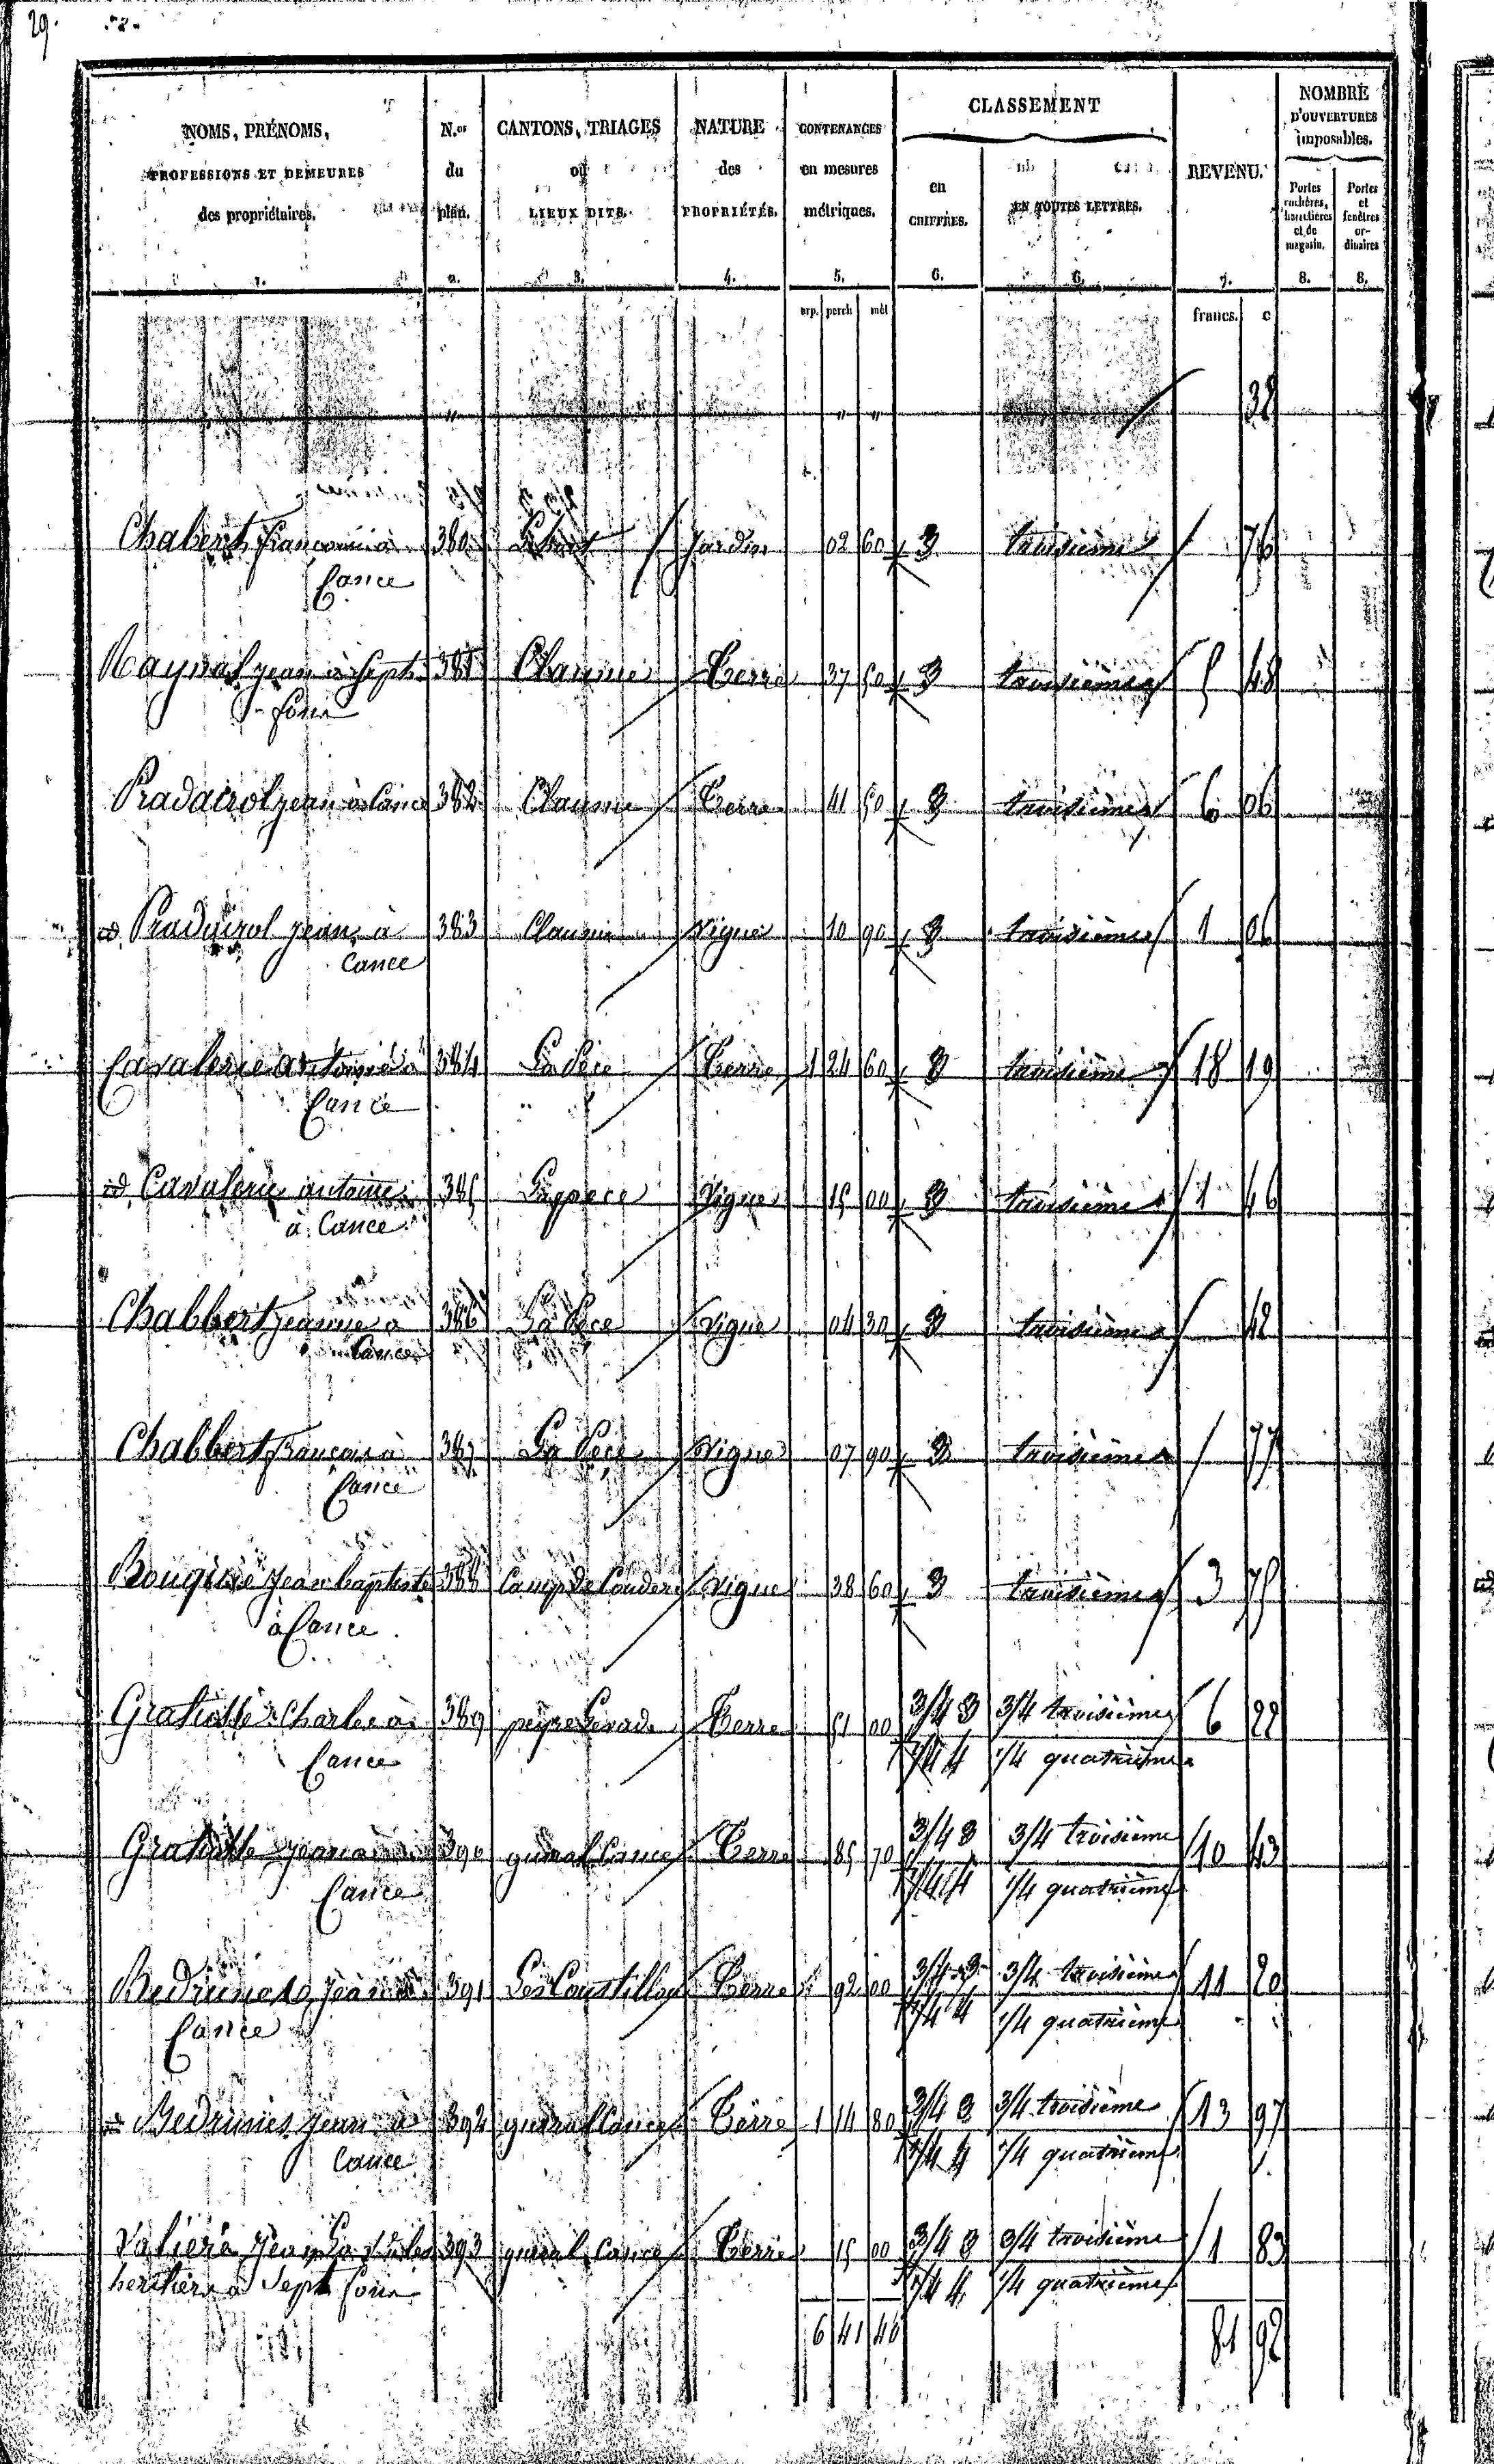 29.
NOMS, PRÉNOMS, PROFESSIONS ET DEMEURES des propriétaires.
N.os du plan.
CANTONS, TRIAGES ou LIEUX DITS.
NATURE des PROPRIÉTÉS.
CONTENANCES en mesures métriques.
CLASSEMENT
en CHIFFRES.
EN TOUTES LETTRES.
REVENU.
NOMBRE D'OUVERTURES imposables.
Portes cochères, charretières et de magasin.
Portes et fenêtres ordinaires
1. 2. 3. 4. 5. 6. 6. 7. 8. 8.
arp. perch mèt francs. c
" " " 38
Chabert francois à 380 jardin 02 60 3 troisième 76
Cance
Raynal jean à Sept 381 Claume Terre 37 50 3 troisième 5 48
fons
Pradairol jean à Cance 382 Claume Terre 41 50 3 troisième 6 06
id Pradairol jean à 383 Claume Vigne 10 90 3 troisième 1 06
Cance
Cavalerie antoine à 384 La Pece Terre 1 24 60 3 troisième 18 19
Cance
id Cavalerie antoine 385 Lapece Vigne 15 00 3 troisième 1 46
à Cance
Chabbert jeanne à 386 La Pece Vigne 04 30 3 troisième 42
Cance
Chabbert francois à 387 La Pece Vigne 07 90 3 troisième 77
Cance
jean baptiste 388 Camp de Vigne 38 60 3 troisième 3 75
à Cance
Charles à 389 Terre 51 00 3/4 3 3/4 troisième 6 22
Cance 1/4 4 1/4 quatrième
jean à 390 Cance Terre 85 70 3/4 3 3/4 troisième 10 43
Cance 1/4 4 1/4 quatrième
jean à 391 Terre 92 00 3/4 3 3/4 troisième 11 20
Cance 1/4 4 1/4 quatrième
id Bedrines jean à 392 Cance Terre 1 14 80 3/4 3 3/4 troisième 13 97
Cance 1/4 4 1/4 quatrième
Valiere jean 393 Cance Terre 15 00 3/4 3 3/4 troisième 1 83
heritiers à Sept fons 1/4 4 1/4 quatrième
6 41 46 81 92